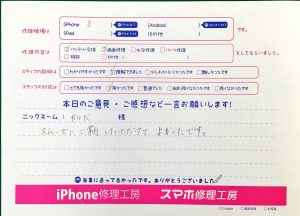 修理機種は iPhone 8 Android
iPad その他 です。
修理内容は バッテリー交換 画面修理 水没修理 パーツ修理
相談 その他 をしてもらいました。
スタッフの説明は わかりやすかったです 理解できました 少しわかりにくかったです 難しかったです
スタッフの対応は とても良かったです 良かったです 普通でした
本日のご意見・ご感想など一言お願いします!
ニックネーム: 様
スムーズに ご対応していただけて よかったです。
お店に送って良かったです。ありがとうございました
iPhone修理工房 スマホ修理工房